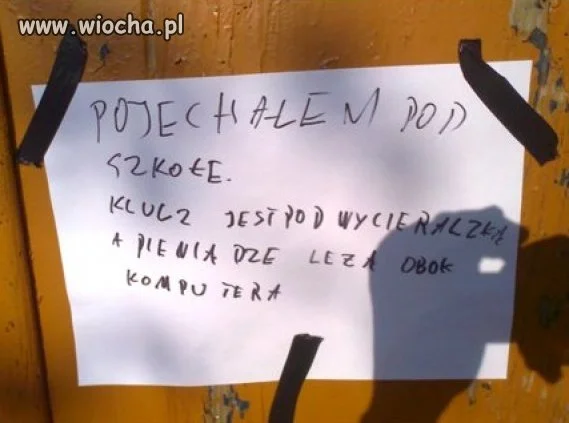 www.wiocha.pl
POJECHAŁEM POD
SZKOŁE.
KLUCZ JEST POD WYCIERACZKĄ
A PIENIADZE LEŻA OBOK
KOMPUTERA